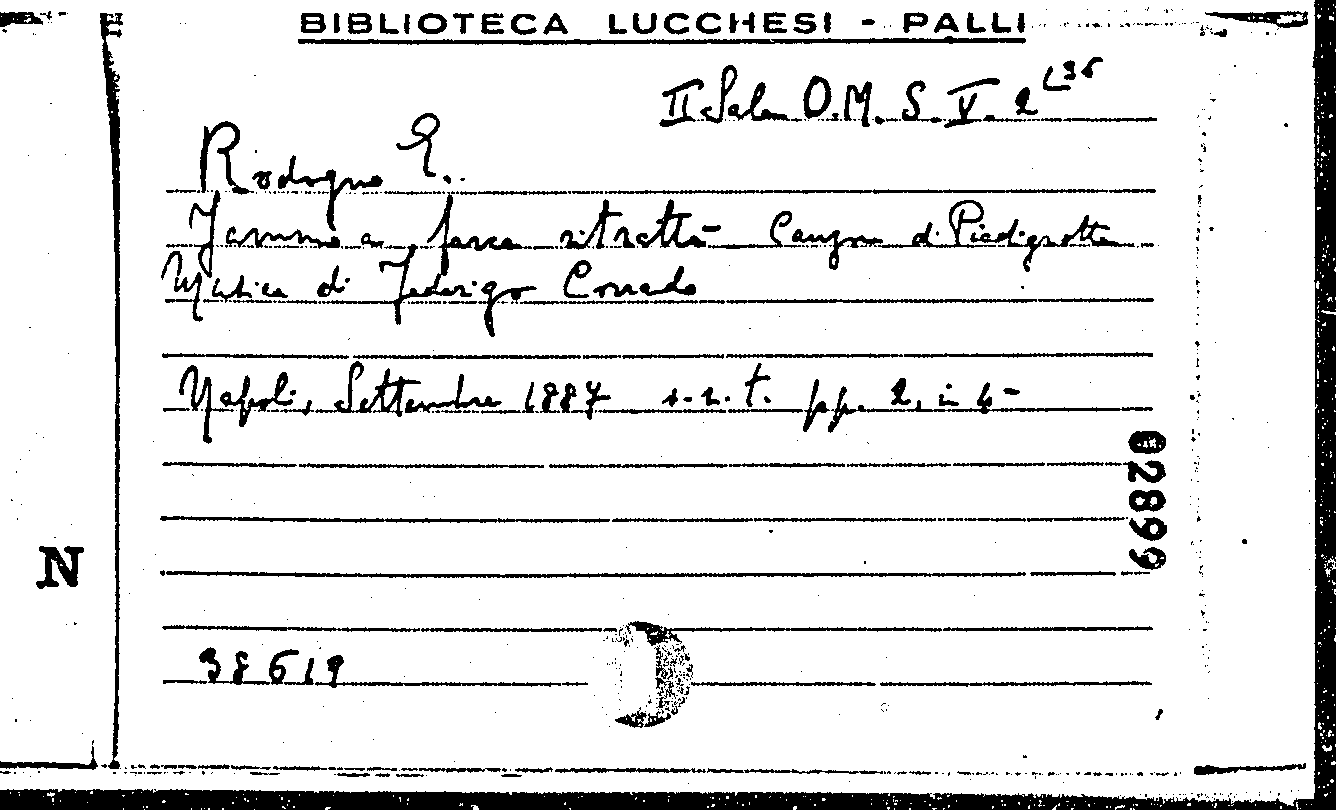 BIBLIOTECA LUCCHESI - PALLI
II Sala O.M. S. V. 2
Rodogno E.
Jammo a farce ritrattà Canzone di Piedigrotta
Musica di Federigo Corrado
Napoli, Settembre 1887 s.n.t. pp. 2, in 4-
02899
N
38619